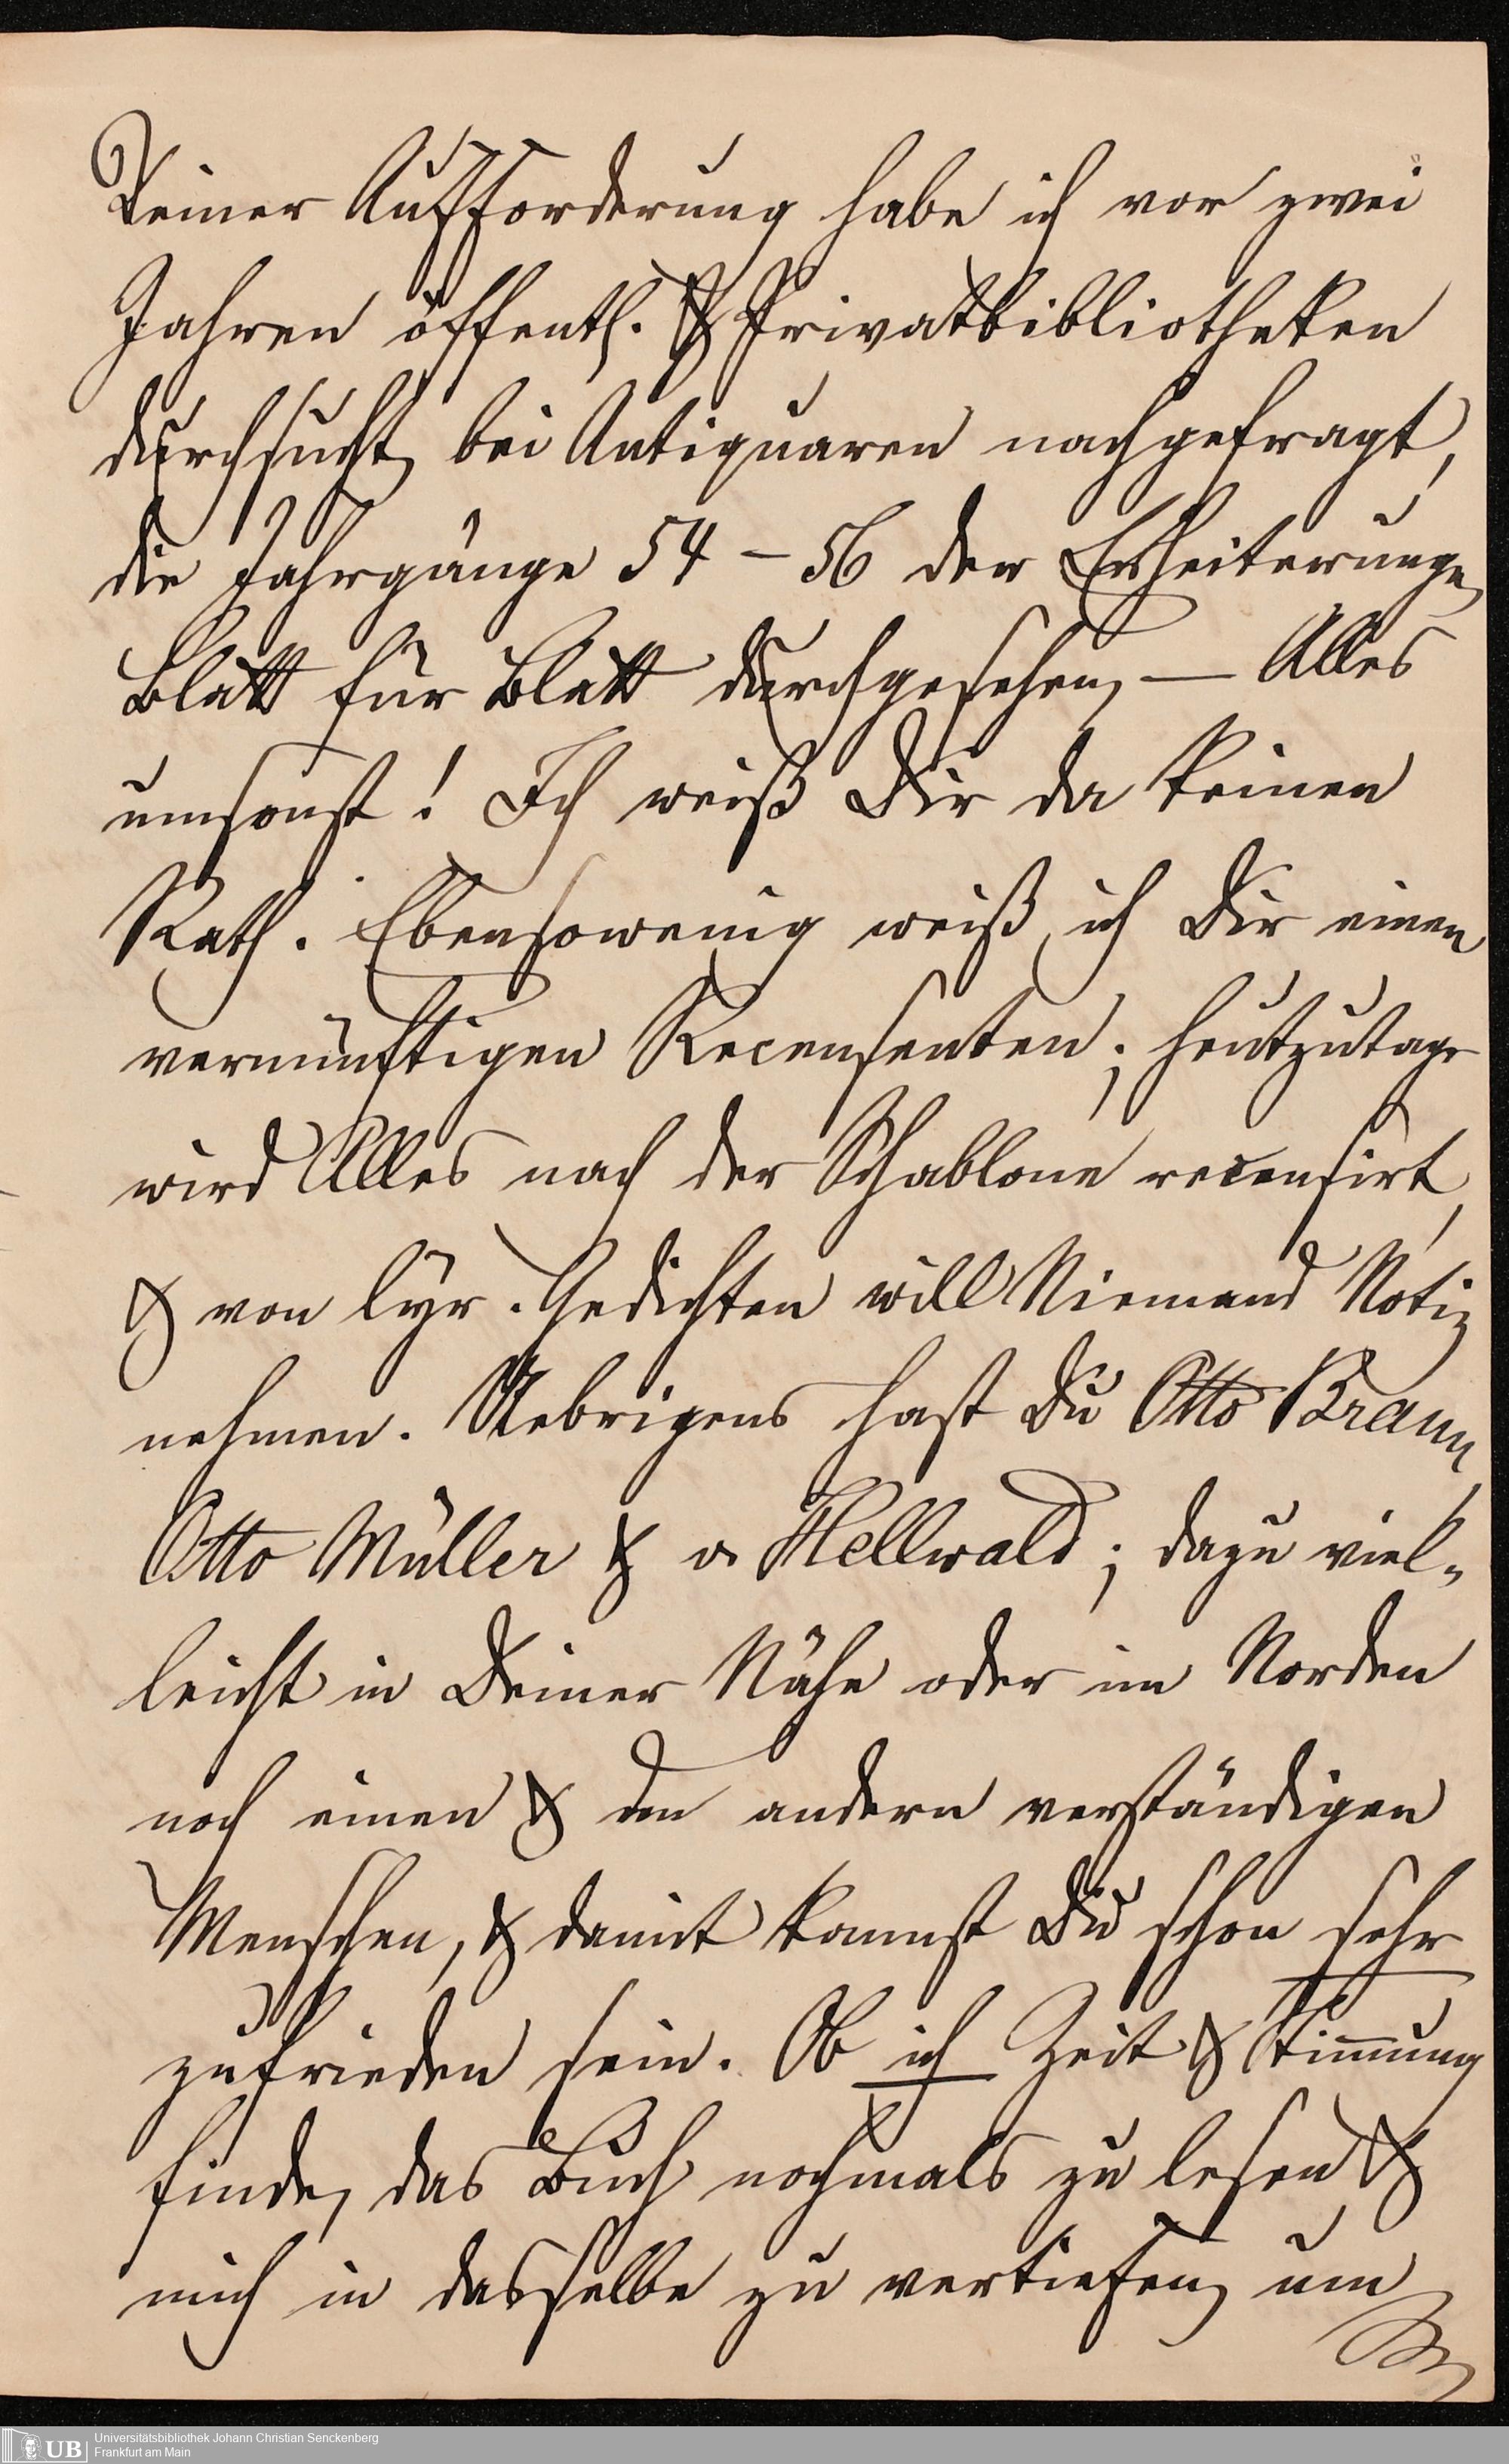 Deiner Aufforderung habe ich vor zwei
Jahren öffentl. & Privatbibliotheken
durchsucht, bei Antiquaren nachgefragt,
die Jahrgänge 54 – 56 der Erheiterungen
Blatt für Blatt durchgesehen, — Alles
umsonst! Ich weiß Dir da keinen
Rath. Ebensowenig weiß ich Dir einen
vernünftigen Recensenten; heutzutage
wird Alles nach der Schablone recensirt,
& von lyr. Gedichten will Niemand Notiz
nehmen. Uebrigens hast Du Otto Braun,
Otto Müller & v. Hellwald; dazu viel-
leicht in Deiner Nähe oder im Norden
noch einen & den andern verständigen
Menschen, & damit kannst Du schon sehr
zufrieden sein. Ob ich Zeit & Stimmung
finde, das Buch nochmals zu lesen &
mich in dasselbe zu vertiefen, um
UB Universitätsbibliothek Johann Christian Senckenberg
Frankfurt am Main